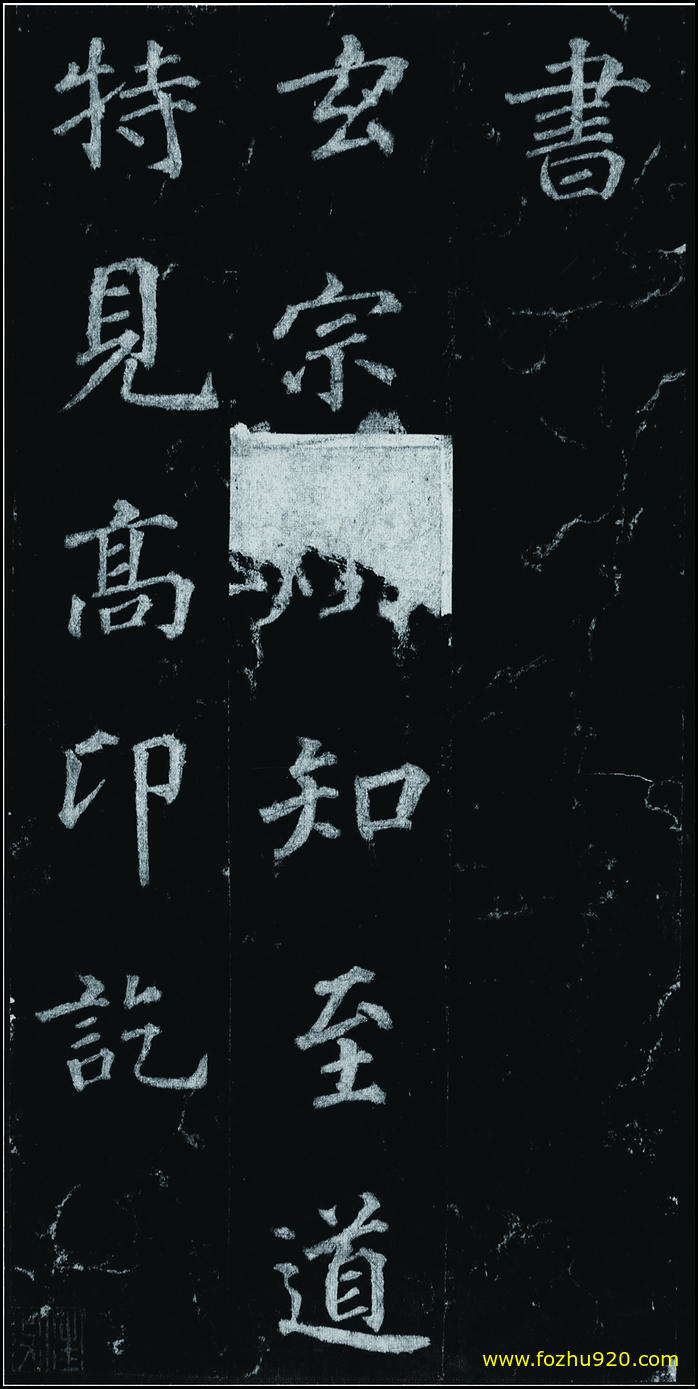 書
玄宗知至道
特見高印訖
www.fozhu920.com